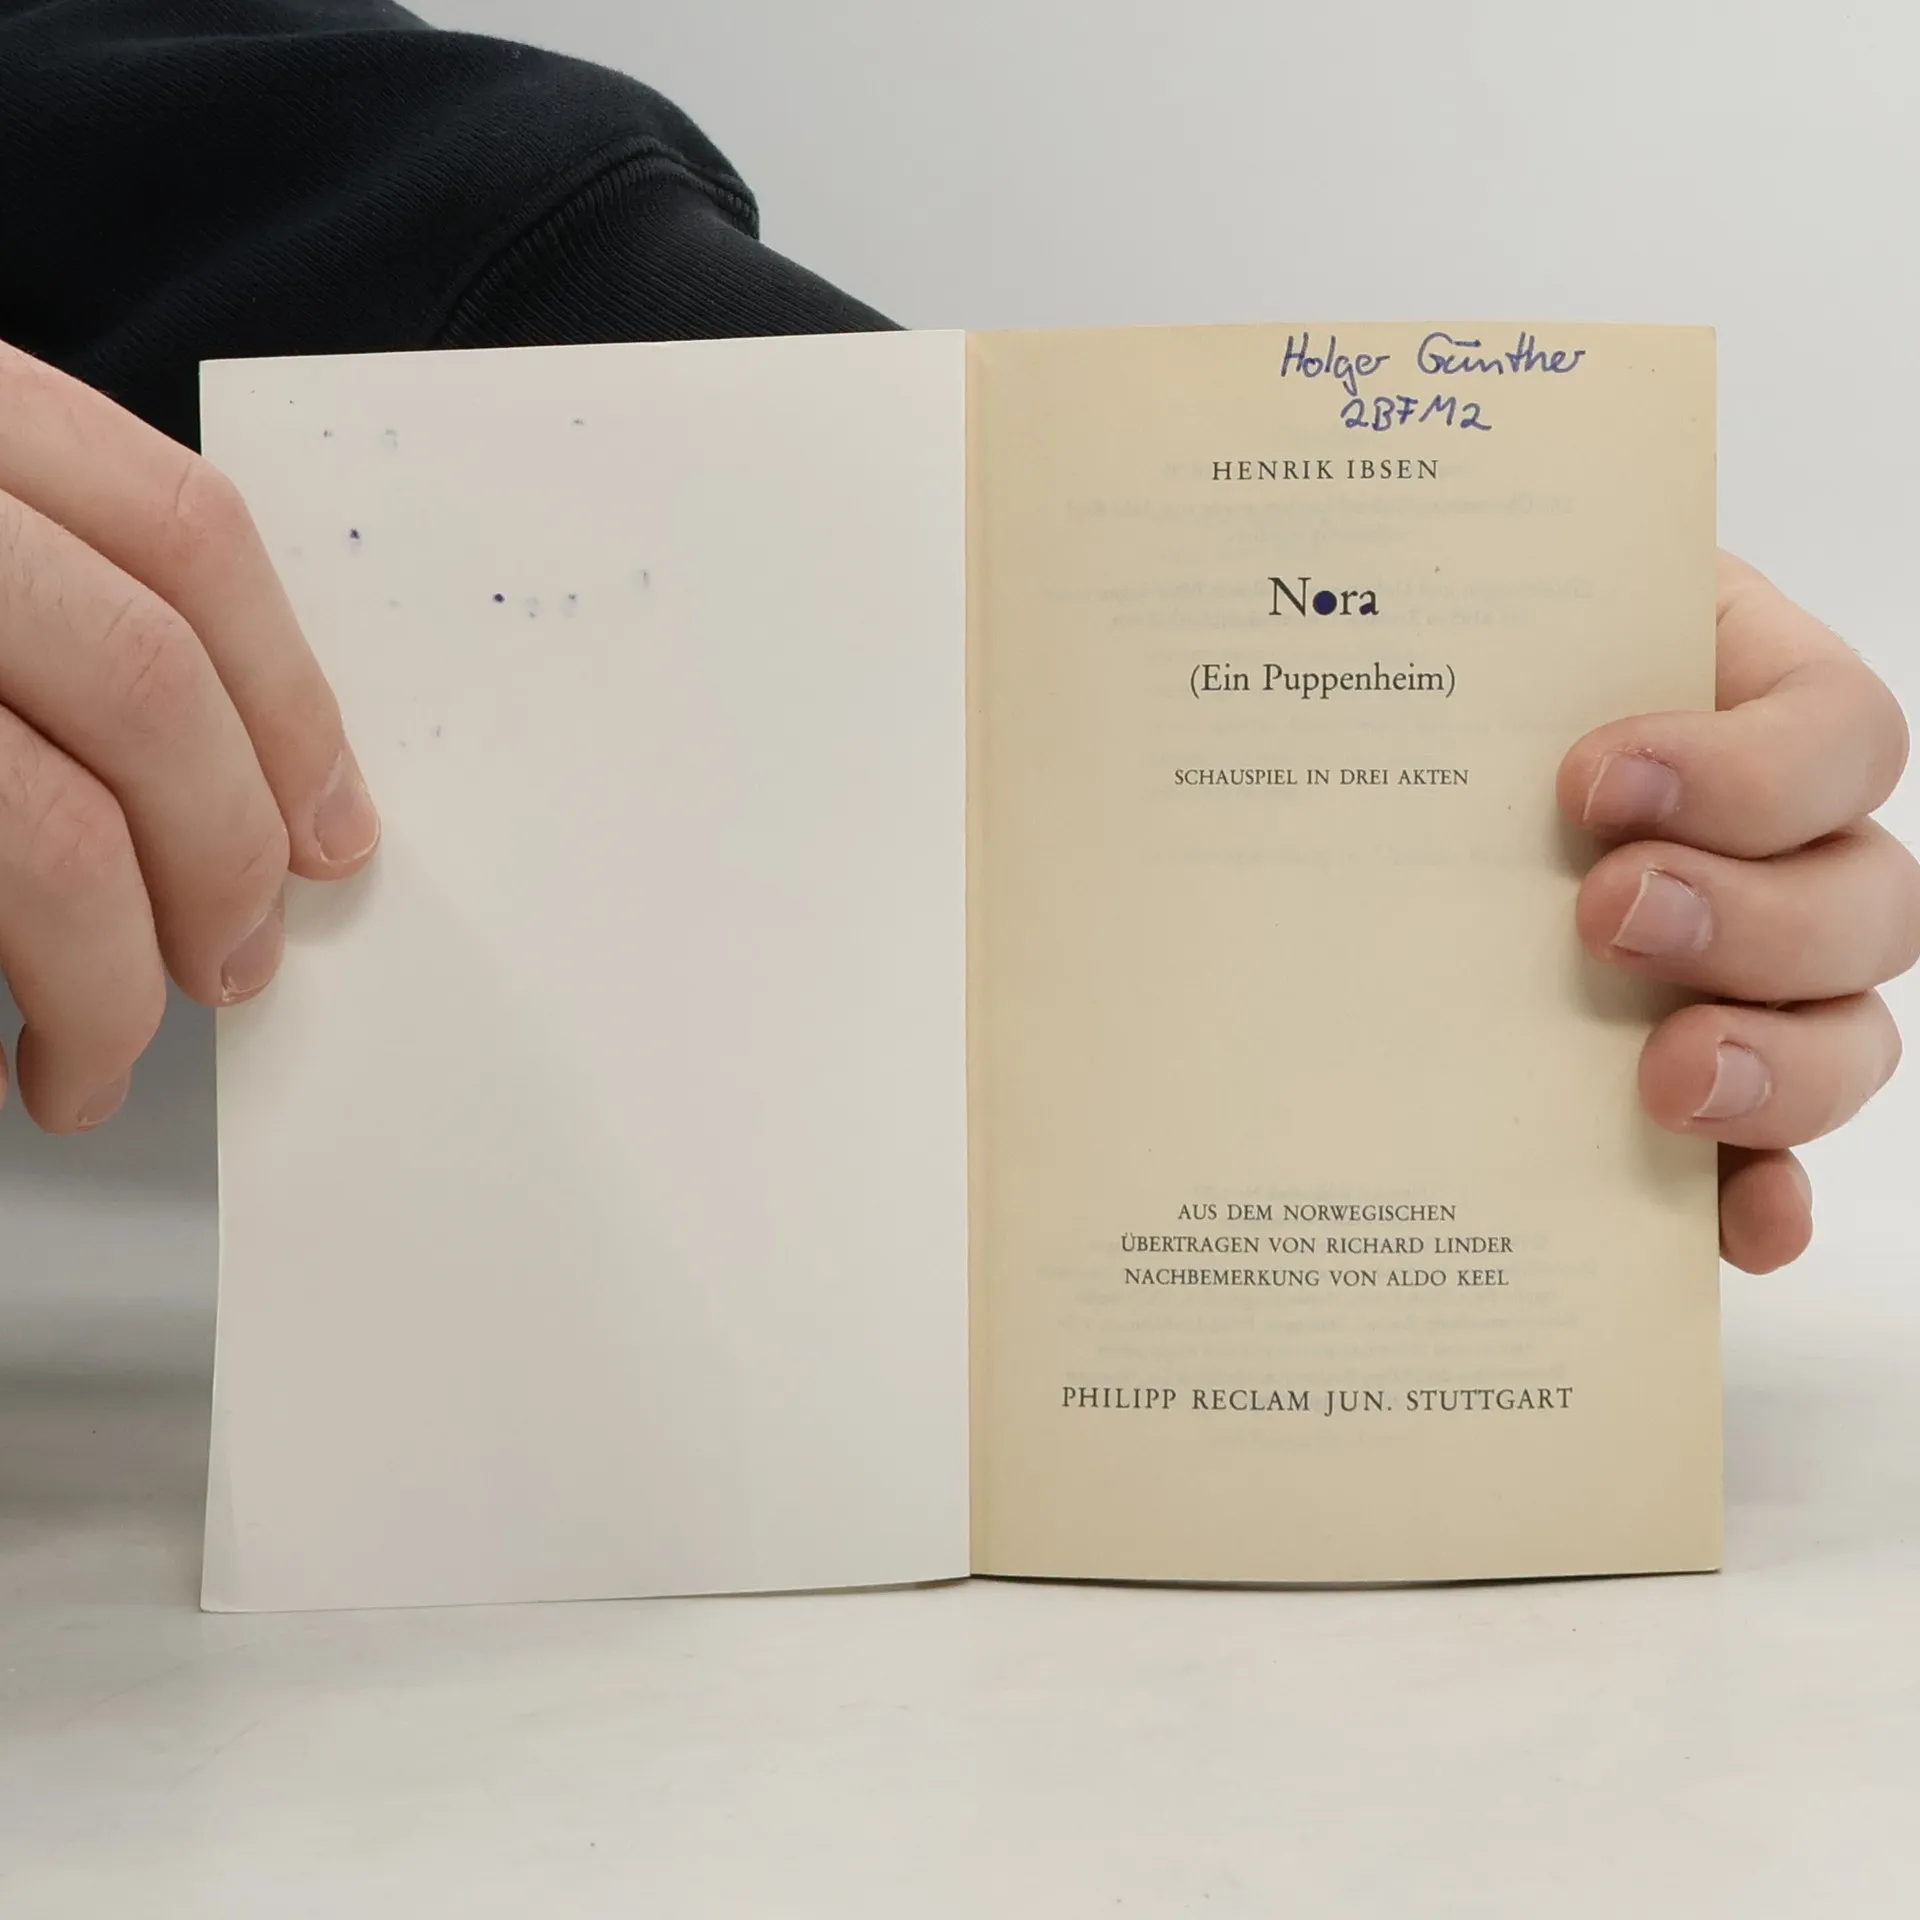 Holger Günther
2BFM2
HENRIK IBSEN
Nora
(Ein Puppenheim)
SCHAUSPIEL IN DREI AKTEN
AUS DEM NORWEGISCHEN
ÜBERTRAGEN VON RICHARD LINDER
NACHBEMERKUNG VON ALDO KEEL
PHILIPP RECLAM JUN. STUTTGART